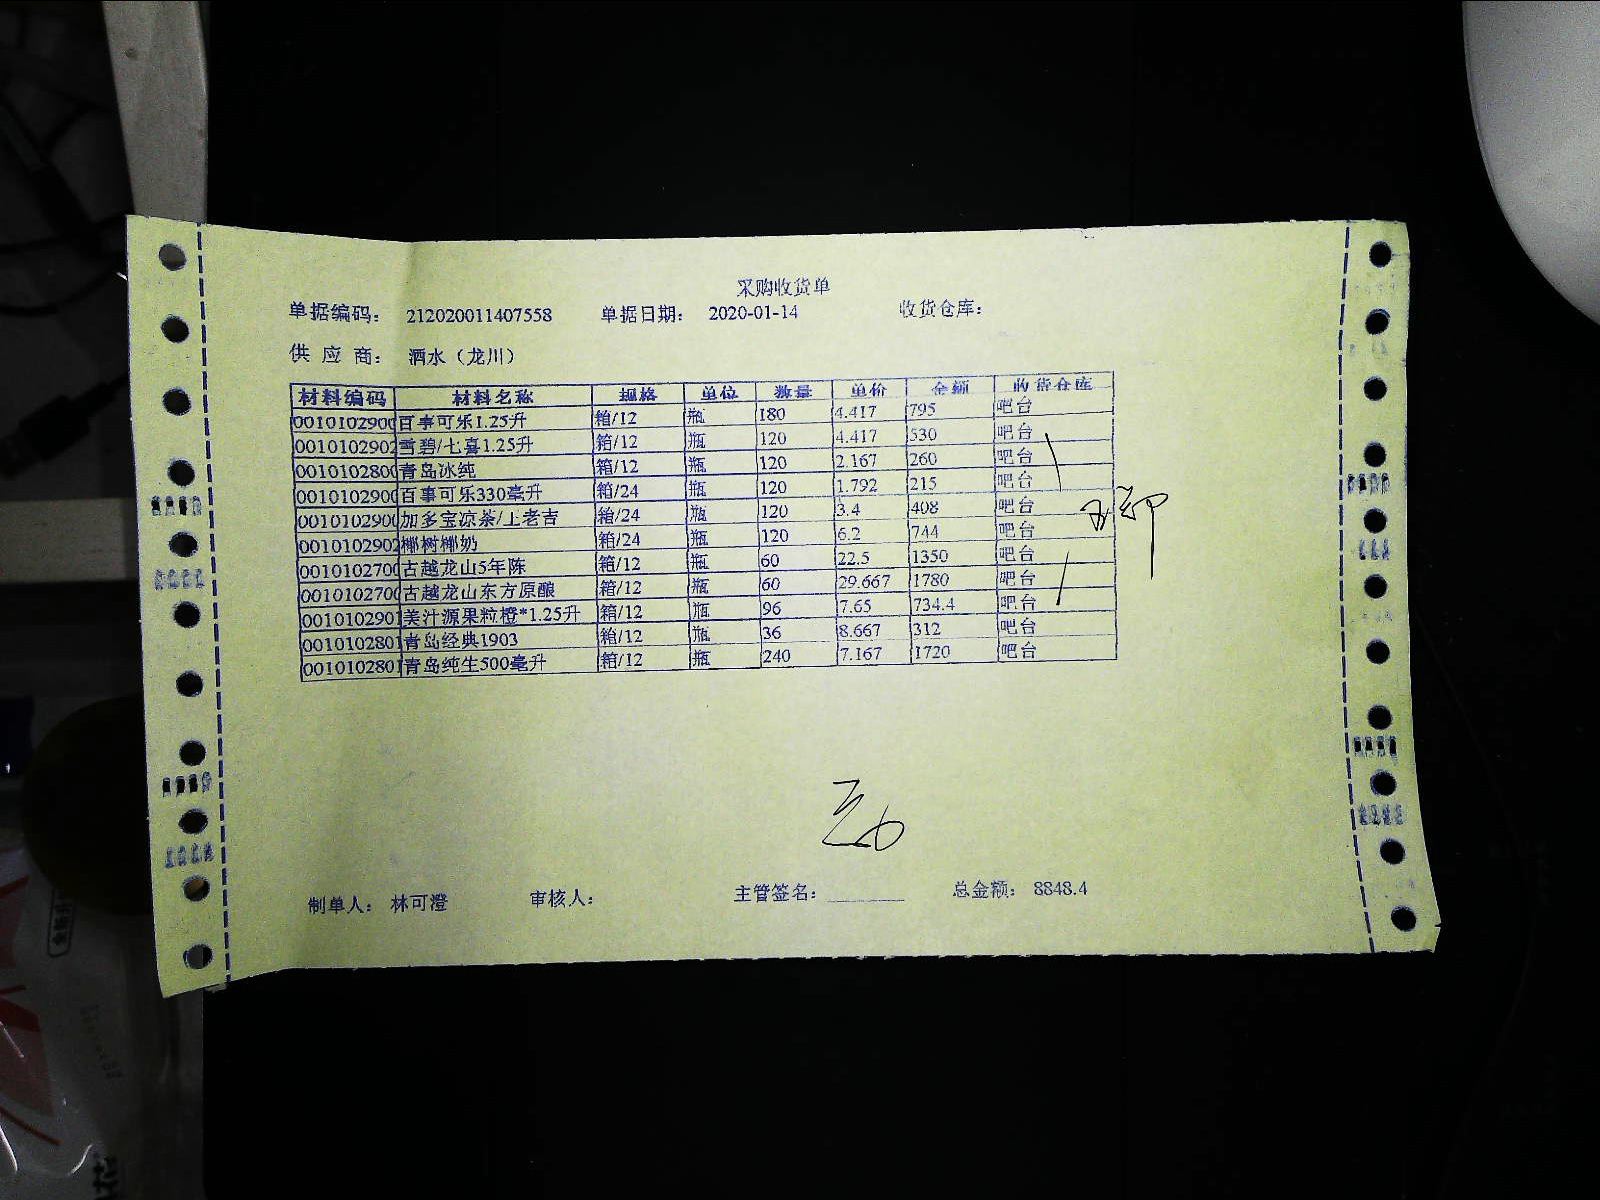 采购收货单
单据编码： 212020011407558 单据日期： 2020-01-14 收货仓库：
供 应 商： 酒水（龙川）
材料编码 材料名称 规格 单位 数量 单价 金额 收货仓库
0010102900 百事可乐1.25升 箱/12 瓶 180 4.417 795 吧台
0010102902 雪碧/七喜1.25升 箱/12 瓶 120 4.417 530 吧台
0010102800 青岛冰纯 箱/12 瓶 120 2.167 260 吧台
0010102900 百事可乐330毫升 箱/24 瓶 120 1.792 215 吧台
0010102900 加多宝凉茶/王老吉 箱/24 瓶 120 3.4 408 吧台
0010102902 椰树椰奶 箱/24 瓶 120 6.2 744 吧台
0010102700 古越龙山5年陈 箱/12 瓶 60 22.5 1350 吧台
0010102700 古越龙山东方原酿 箱/12 瓶 60 29.667 1780 吧台
0010102901 美汁源果粒橙*1.25升 箱/12 瓶 96 7.65 734.4 吧台
0010102801 青岛经典1903 箱/12 瓶 36 8.667 312 吧台
0010102801 青岛纯生500毫升 箱/12 瓶 240 7.167 1720 吧台
制单人： 林可澄 审核人： 主管签名： 总金额： 8848.4